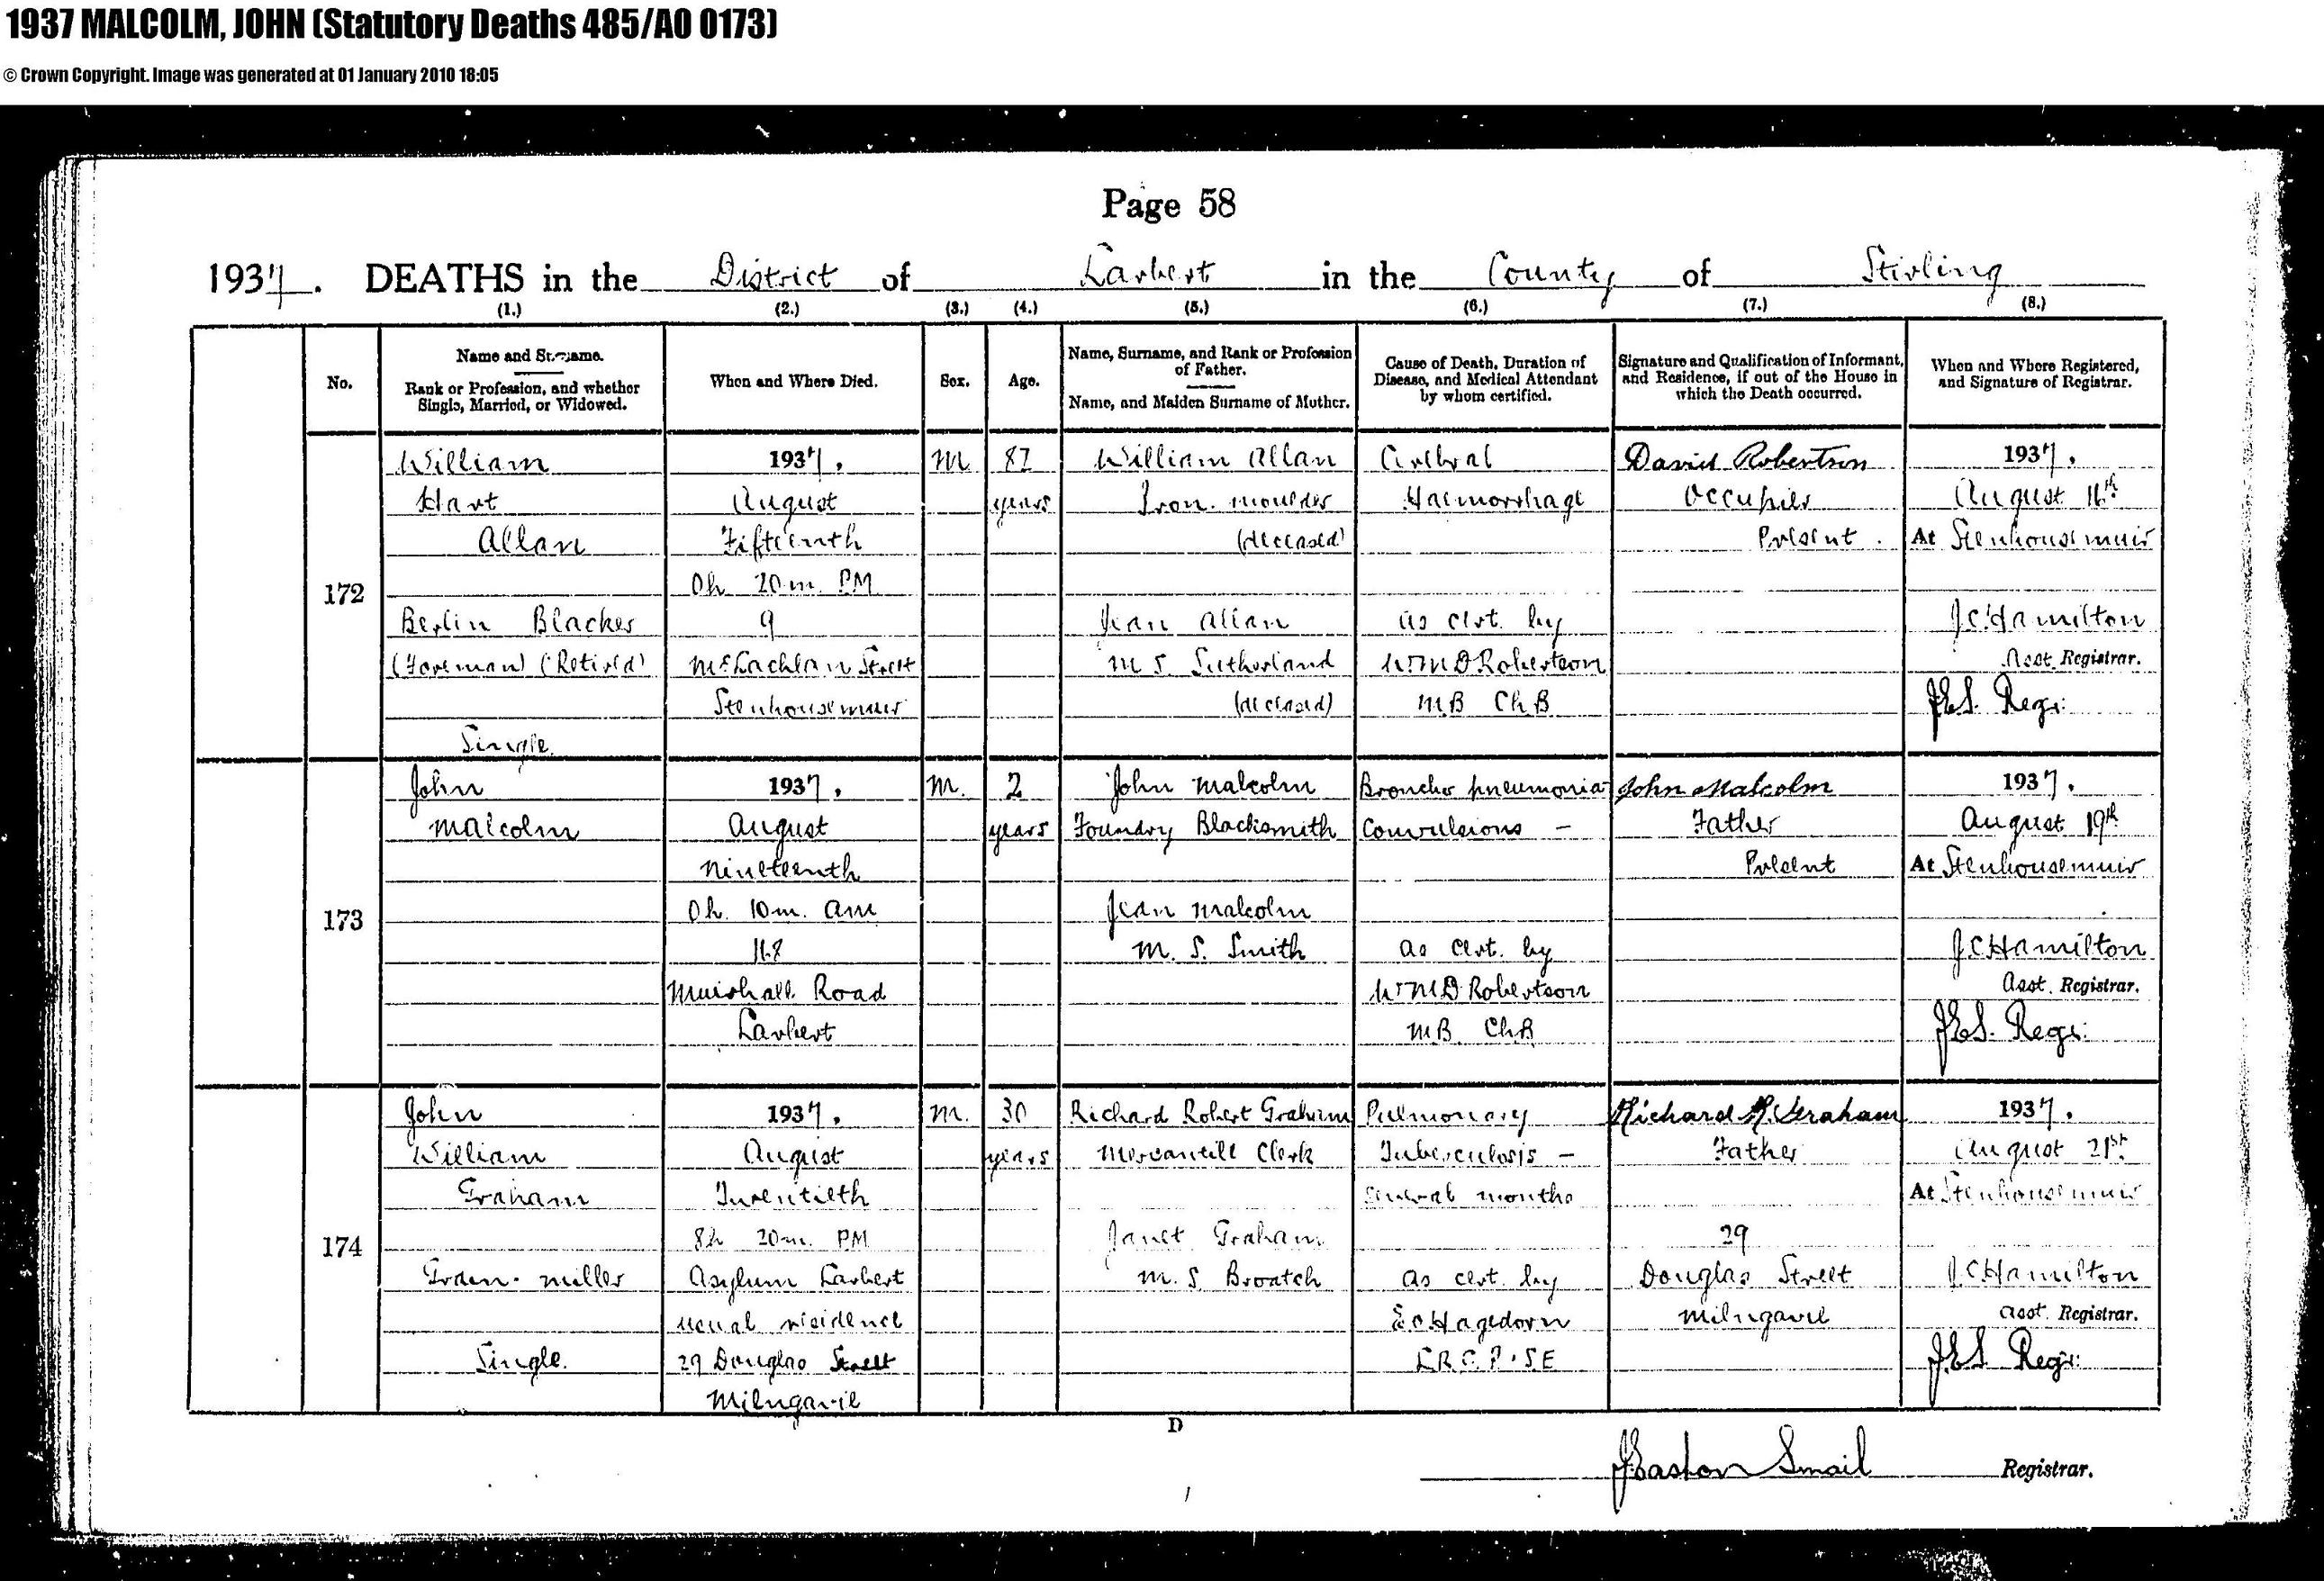 1937 MALCOLM, JOHN (Statutory Deaths 485/A0 0173)
© Crown Copyright. Image was generated at 01 January 2010 18:05
Page 58
1937. DEATHS in the District of Larbert in the County of Stirling
(1.) (2.) (3.) (4.) (5.) (6.) (7.) (8.)
No.
Name and Surname.
Rank or Profession, and whether
Single, Married, or Widowed.
When and Where Died.
Sex.
Age.
Name, Surname, and Rank or Profession
of Father.
Name, and Maiden Surname of Mother.
Cause of Death, Duration of
Disease, and Medical Attendant
by whom certified.
Signature and Qualification of Informant,
and Residence, if out of the House in
which the Death occurred.
When and Where Registered,
and Signature of Registrar.
172
William
Hart
Allan
Berlin Blacker
(Foreman) (Retired)
Single
1937.
August
Fifteenth
0h 20m. PM
9
McLachlan Street
Stenhousemuir
M
87
years
William Allan
Iron-moulder
(deceased)
Jean Allan
M. S. Sutherland
(deceased)
Cerebral
Haemorrhage
as cert. by
Wm D Robertson
MB ChB
David Robertson
Occupier
Present.
1937.
August 16th
At Stenhousemuir
J.C. Hamilton
Asst. Registrar.
J.E.S. Regr.
173
John
Malcolm
1937.
August
Nineteenth
0h. 10m. AM
Muirhall Road
Larbert
M.
2
years
John Malcolm
Foundry Blacksmith
Jean Malcolm
M. S. Smith
Broncho pneumonia
Convulsions –
as cert. by
Wm D Robertson
MB. ChB
John Malcolm
Father
Present
1937.
August 19th
At Stenhousemuir
J.C. Hamilton
Asst. Registrar.
J.E.S. Regr.
174
John
William
Graham
Grain-miller
Single.
1937.
August
Twentieth
8h 20m. PM
Asylum Larbert
usual residence
29 Douglas Street
Milngavie
M.
30
years
Richard Robert Graham
Mercantile Clerk
Janet Graham
M. S. Broatch
Pulmonary
Tuberculosis –
several months
as cert. by
Hagedorn
L.R.C.P.&S.E
Richard R. Graham
Father
29
Douglas Street
Milngavie
1937.
August 21st
At Stenhousemuir
J.C. Hamilton
Asst. Registrar.
J.E.S. Regr.
D
J. Easton Smail Registrar.